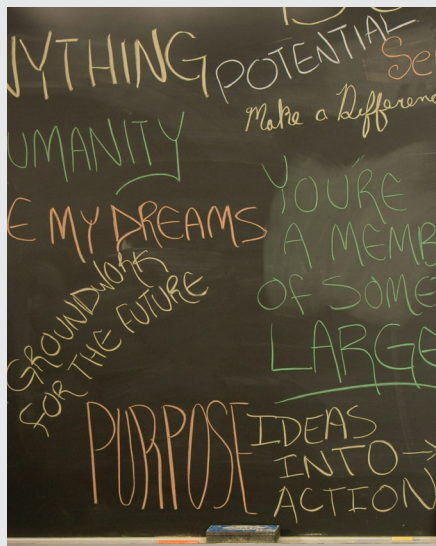 NYTHING
POTENTIAL
Se
Make a Differenc
UMANITY
YOU'RE
A MEMB
OF SOME
LARGE
E MY DREAMS
GROUNDWORK
FOR THE FUTURE
PURPOSE
IDEAS
INTO →
ACTION